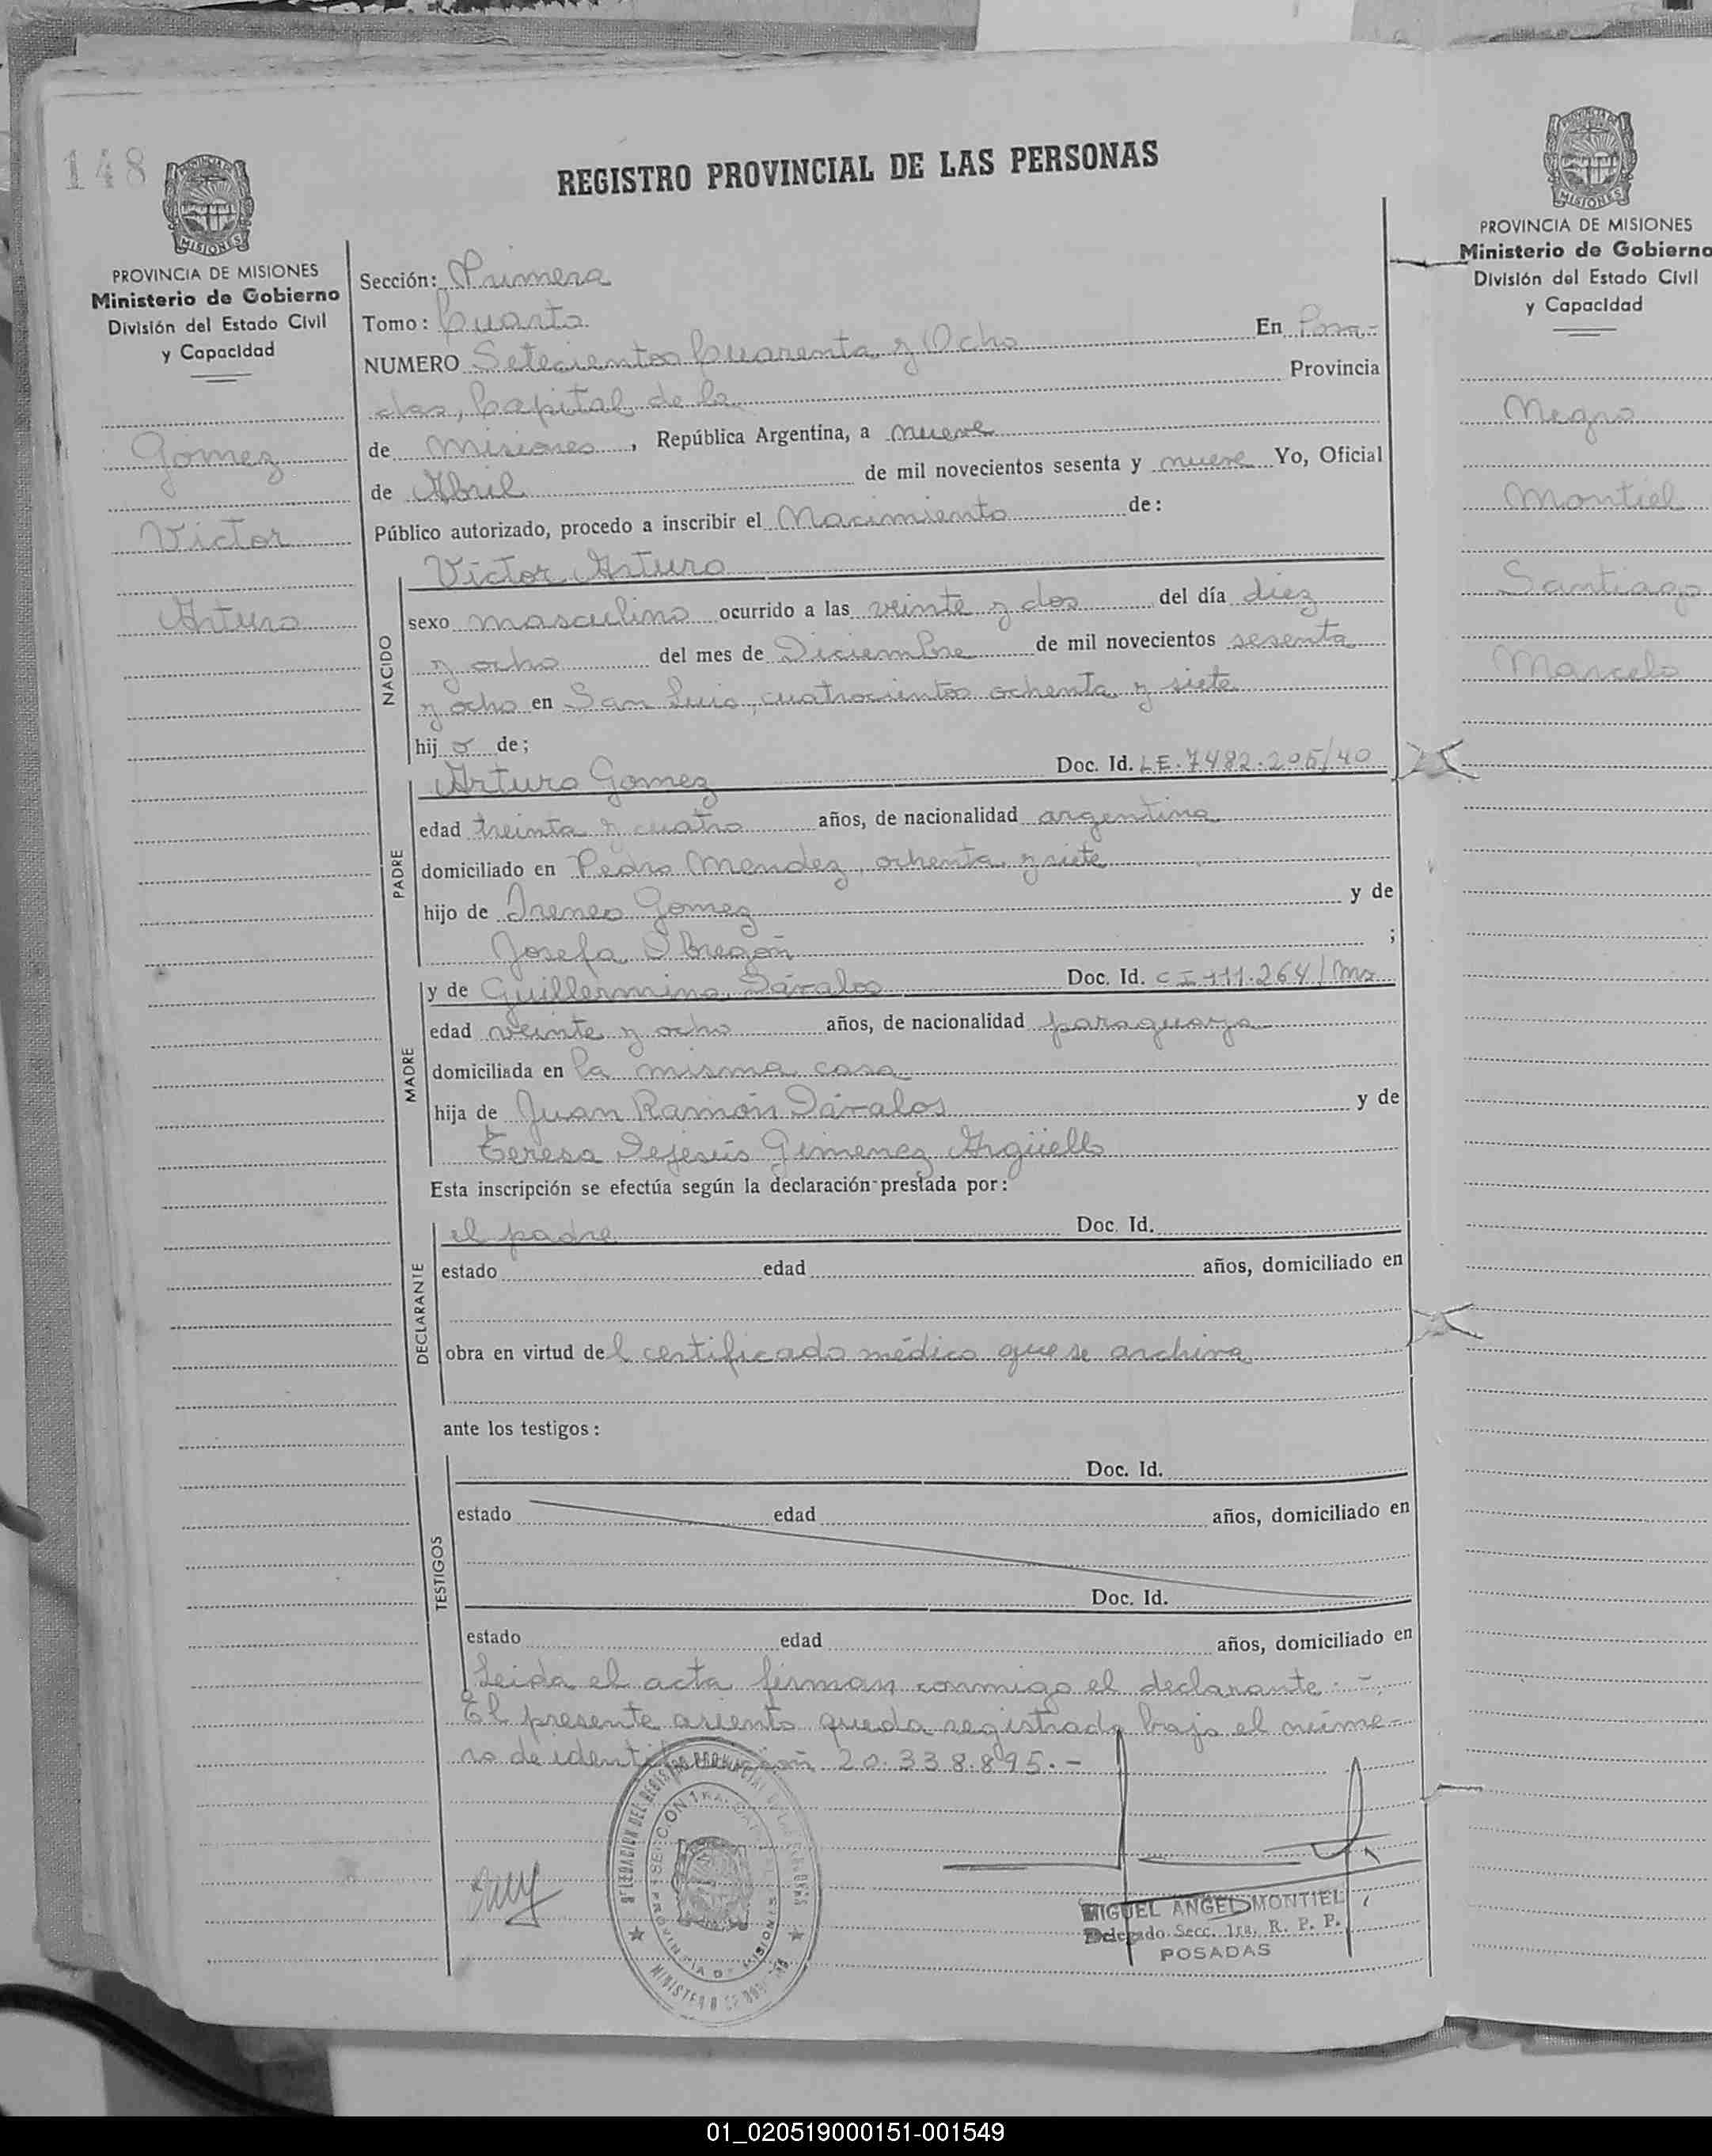 148
REGISTRO PROVINCIAL DE LAS PERSONAS
MISIONES
PROVINCIA DE MISIONES
Ministerio de Gobierno
División del Estado Civil
y Capacidad
Gomez
Victor
Arturo
Sección: Primera
Tomo: Cuarto
NUMERO Setecientos Cuarenta y Ocho En Posa-
das, Capital de la Provincia
de Misiones, República Argentina, a nueve
de Abril de mil novecientos sesenta y nueve Yo, Oficial
Público autorizado, procedo a inscribir el Nacimiento de:
NACIDO
Victor Arturo
sexo masculino ocurrido a las veinte y dos del día diez
y ocho del mes de Diciembre de mil novecientos sesenta
y ocho en San Luis, cuatrocientos ochenta y siete
hij o de;
PADRE
Arturo Gomez Doc. Id. L.E. 7482.205/40
edad treinta y cuatro años, de nacionalidad argentina
domiciliado en Pedro Mendez, ochenta y siete
hijo de Ireneo Gomez y de
Josefa Obregón ;
MADRE
y de Guillermina Dávalos Doc. Id. C I 111.264/Ms
edad veinte y ocho años, de nacionalidad paraguaya
domiciliada en la misma casa
hija de Juan Ramón Dávalos y de
Teresa Dejesús Gimenez Argüello
Esta inscripción se efectúa según la declaración prestada por:
DECLARANTE
el padre Doc. Id.
estado edad años, domiciliado en
obra en virtud del certificado médico que se archiva
ante los testigos:
TESTIGOS
Doc. Id.
estado edad años, domiciliado en
Doc. Id.
estado edad años, domiciliado en
Leida el acta firman conmigo el declarante.-
El presente asiento queda registrado bajo el núme-
ro de identificación 20.338.895.-
MIGUEL ANGEL MONTIEL
Delegado Secc. 1ra. R. P. P.
POSADAS
MISIONES
PROVINCIA DE MISIONES
Ministerio de Gobierno
División del Estado Civil
y Capacidad
Negro
Montiel
Santiago
Marcelo
01_020519000151-001549